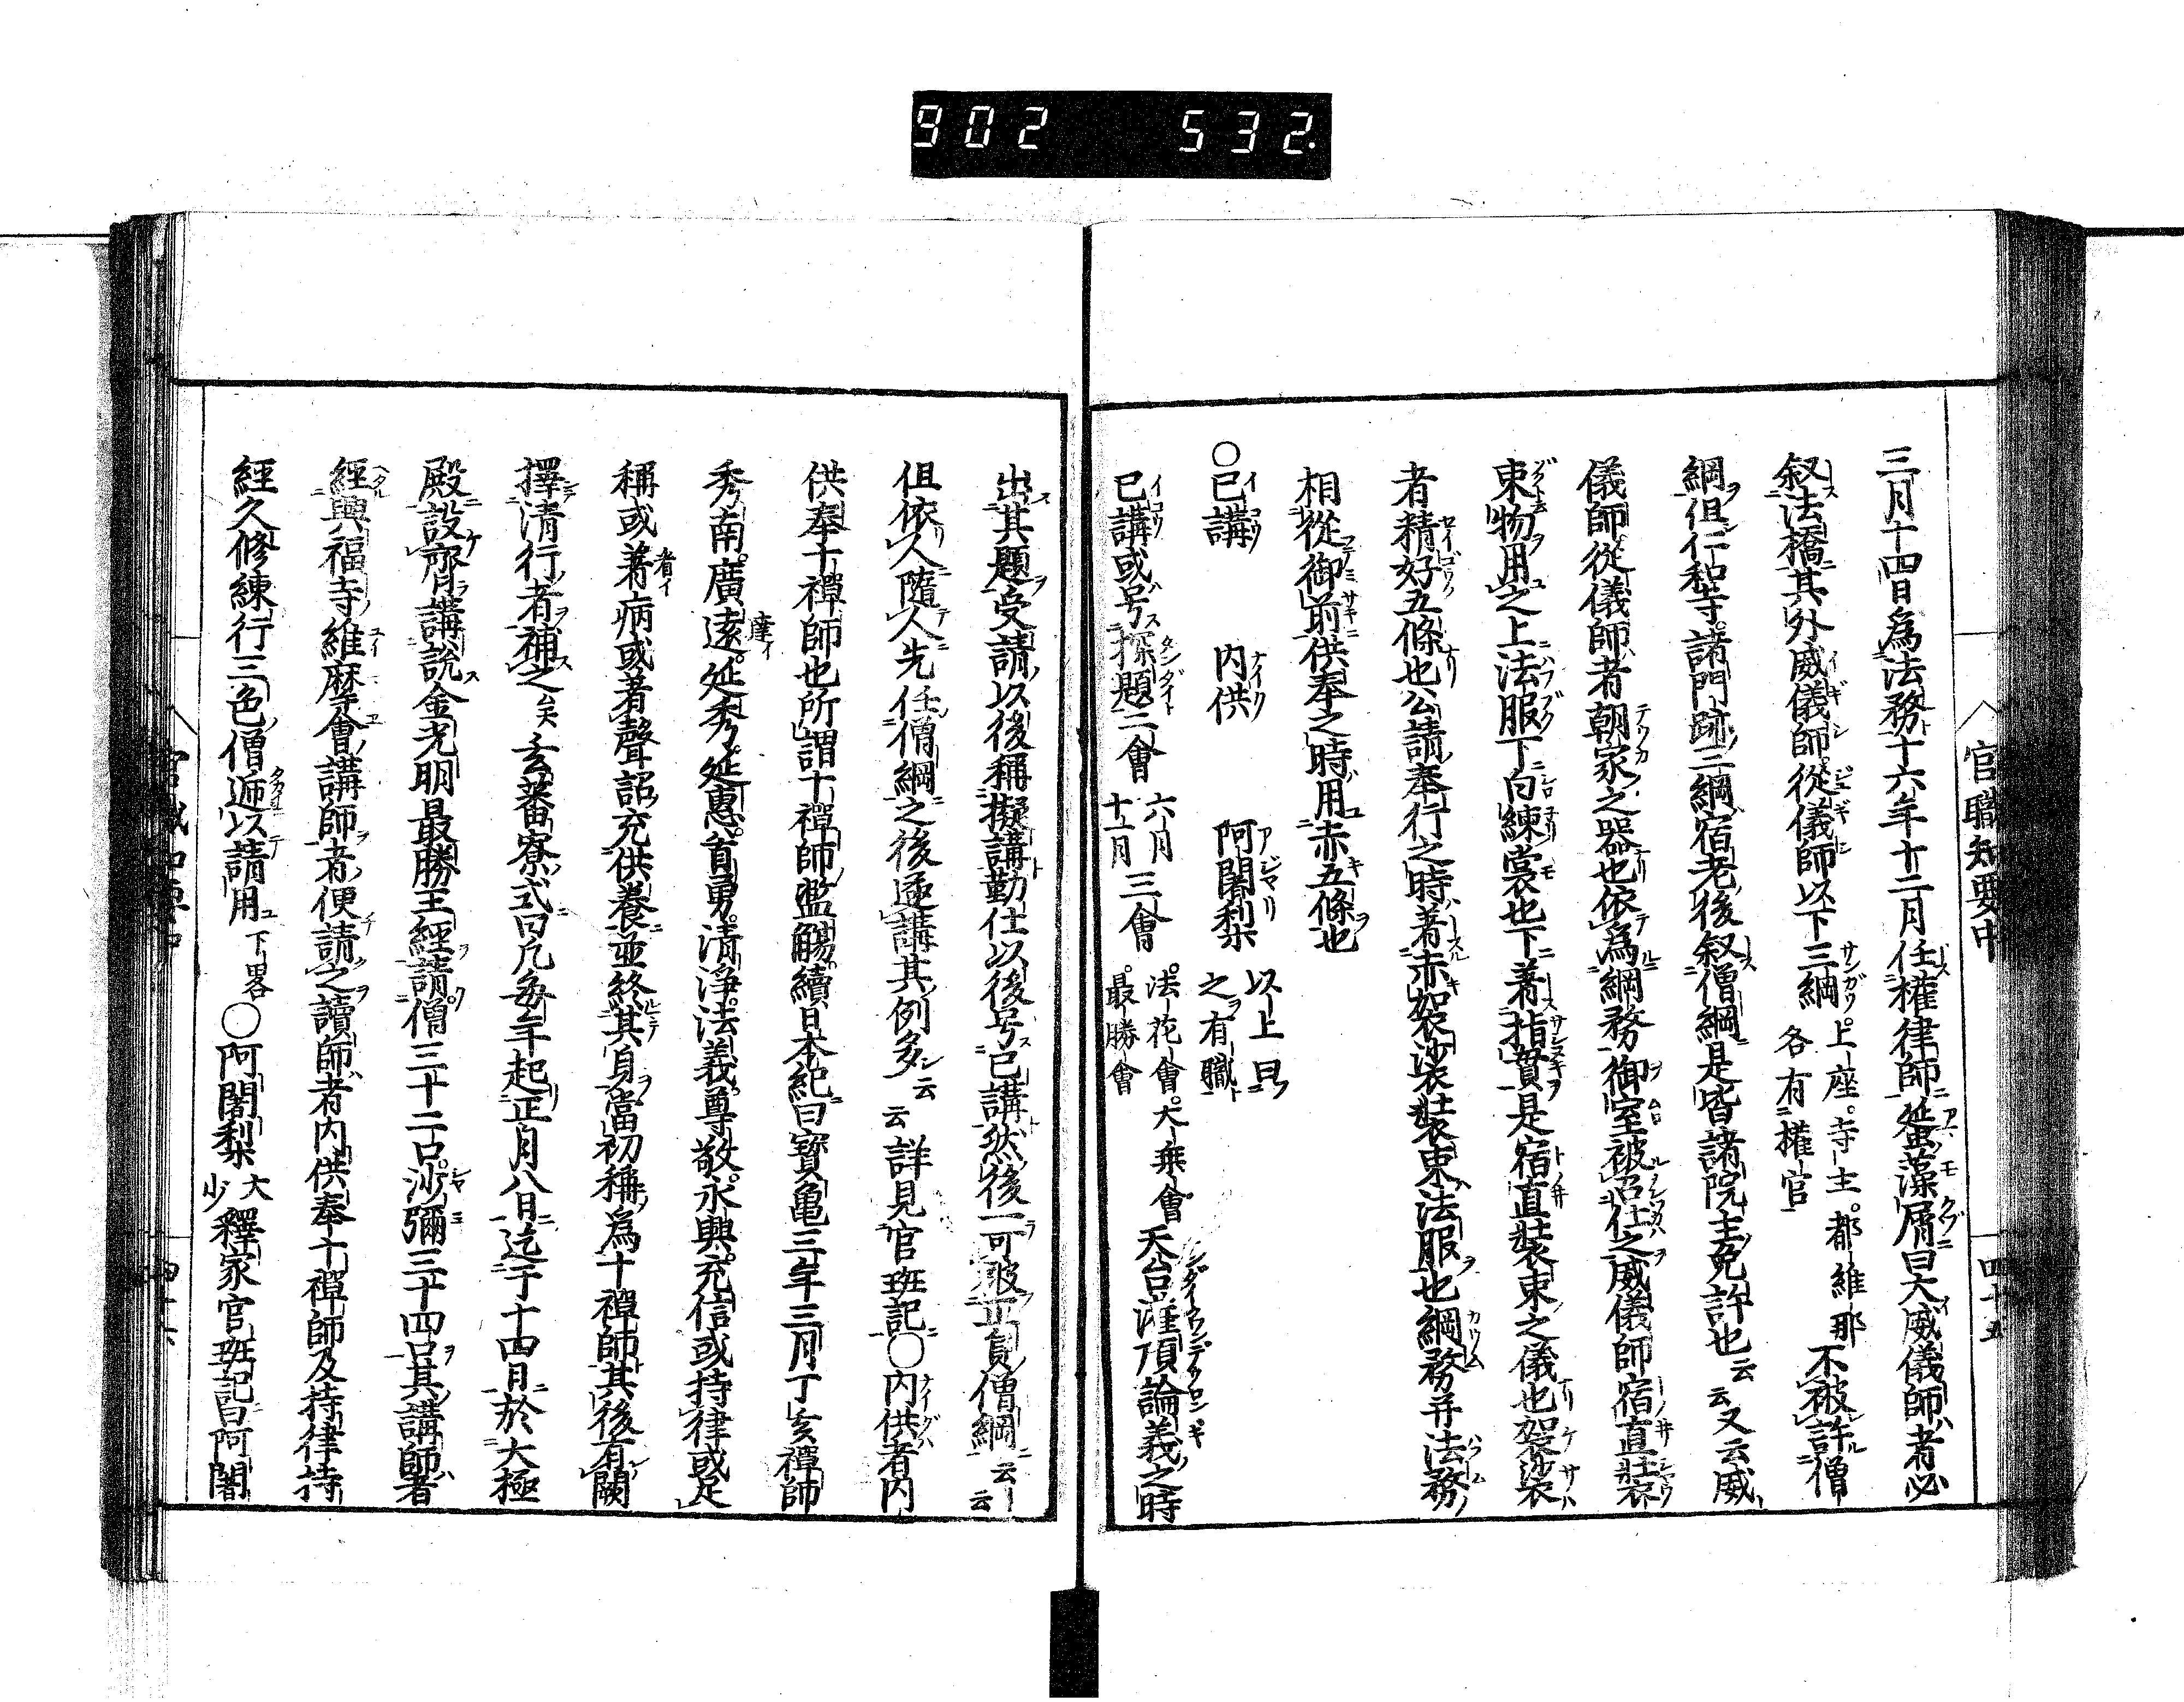 902 532.
官職知要中
四十五
三月十四日為法務十六年十二月任權律師蜑藻屑曰大威儀師者必
叙法橋其外威儀師從儀師以下三綱上座寺主都維那各有權官不被許僧
綱但仁和寺諸門跡三綱宿老後叙僧綱是皆諸院主免許也云云又云威
儀師從儀師者朝家之器也依為綱務御室被召仕之威儀師宿直装
束物用之上法服下白練裳也下著指貫是宿直装束之儀也袈裟
者精好五條也公請奉行之時著赤袈裟装束法服也綱務并法務
相從御前供奉之時用赤五條也
○已講 内供 阿闍梨 以上曰之有職
已講或号探題二會六月十二月三會法花會大乗會最勝會天台灌頂論義之時
出其題受請以後稱擬講勤仕以後号已講然後一可被正員僧綱云云
但依人隨人先任僧綱之後遂講其例多云云詳見官班記○内供者内
供奉十禪師也所謂十禪師濫觴續日本紀曰寶亀三年三月丁亥禪師
秀南廣遠達イ延秀延惠首勇清淨法義尊敬永興充信或持律或足
稱或著看イ病或著聲詔充供養並終其身當初稱為十禪師其後有闕
擇清行者補之矣玄蕃寮式曰凡每年起正月八日迄于十四日於大極
殿設齊講説金光明最勝王經請僧三十二口沙彌三十四口其講師者
經興福寺維摩會講師者便請之讀師者内供奉十禪師及持律持
經久修練行三色僧遞以請用下畧○阿闍梨大少釋家官班記曰阿闍